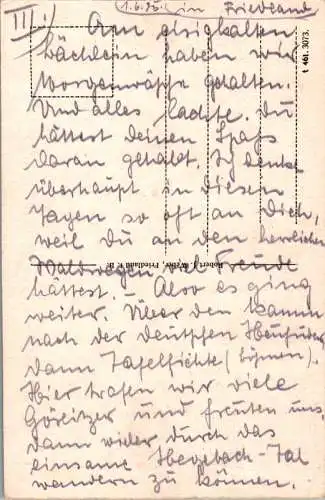 III.) (1.6.36.) in Friedland
Am eisigkalten
Bächlein haben wir
Morgenwäsche gehalten.
Und alles lachte. Du
hättest deinen Spaß
daran gehabt. Ich denke
überhaupt in diesen
Tagen so oft an Dich,
weil du an den herrlichen
Waldwegen Freude
hättest. – Also es ging
weiter. Über den Kamm
nach der deutschen
dann Tafelfichte (böhmen).
Hier trafen wir viele
Görlitzer und freuten uns,
dann wider durch das
einsame Hegebach-Tal
wandern zu können.
t 461. 3073.
Robert Weber, Friedland i. B.